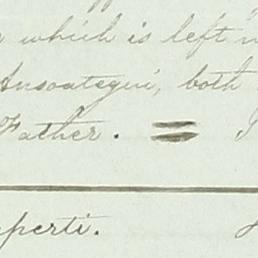 which is left
Ansoategui, both
Father. =
perti.